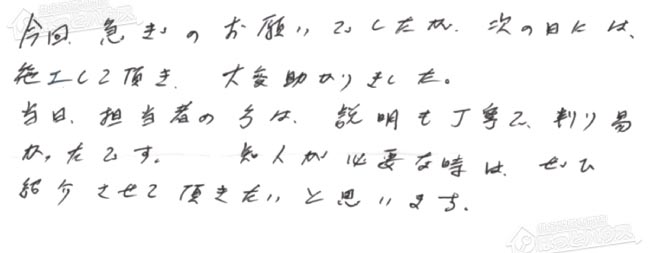 今回、急ぎのお願いでしたが、次の日には、
施工して頂き、大変助かりました。
当日、担当者の方は、説明も丁寧で、判り易
かったです。 知人が必要な時は、ぜひ
紹介させて頂きたいと思います。